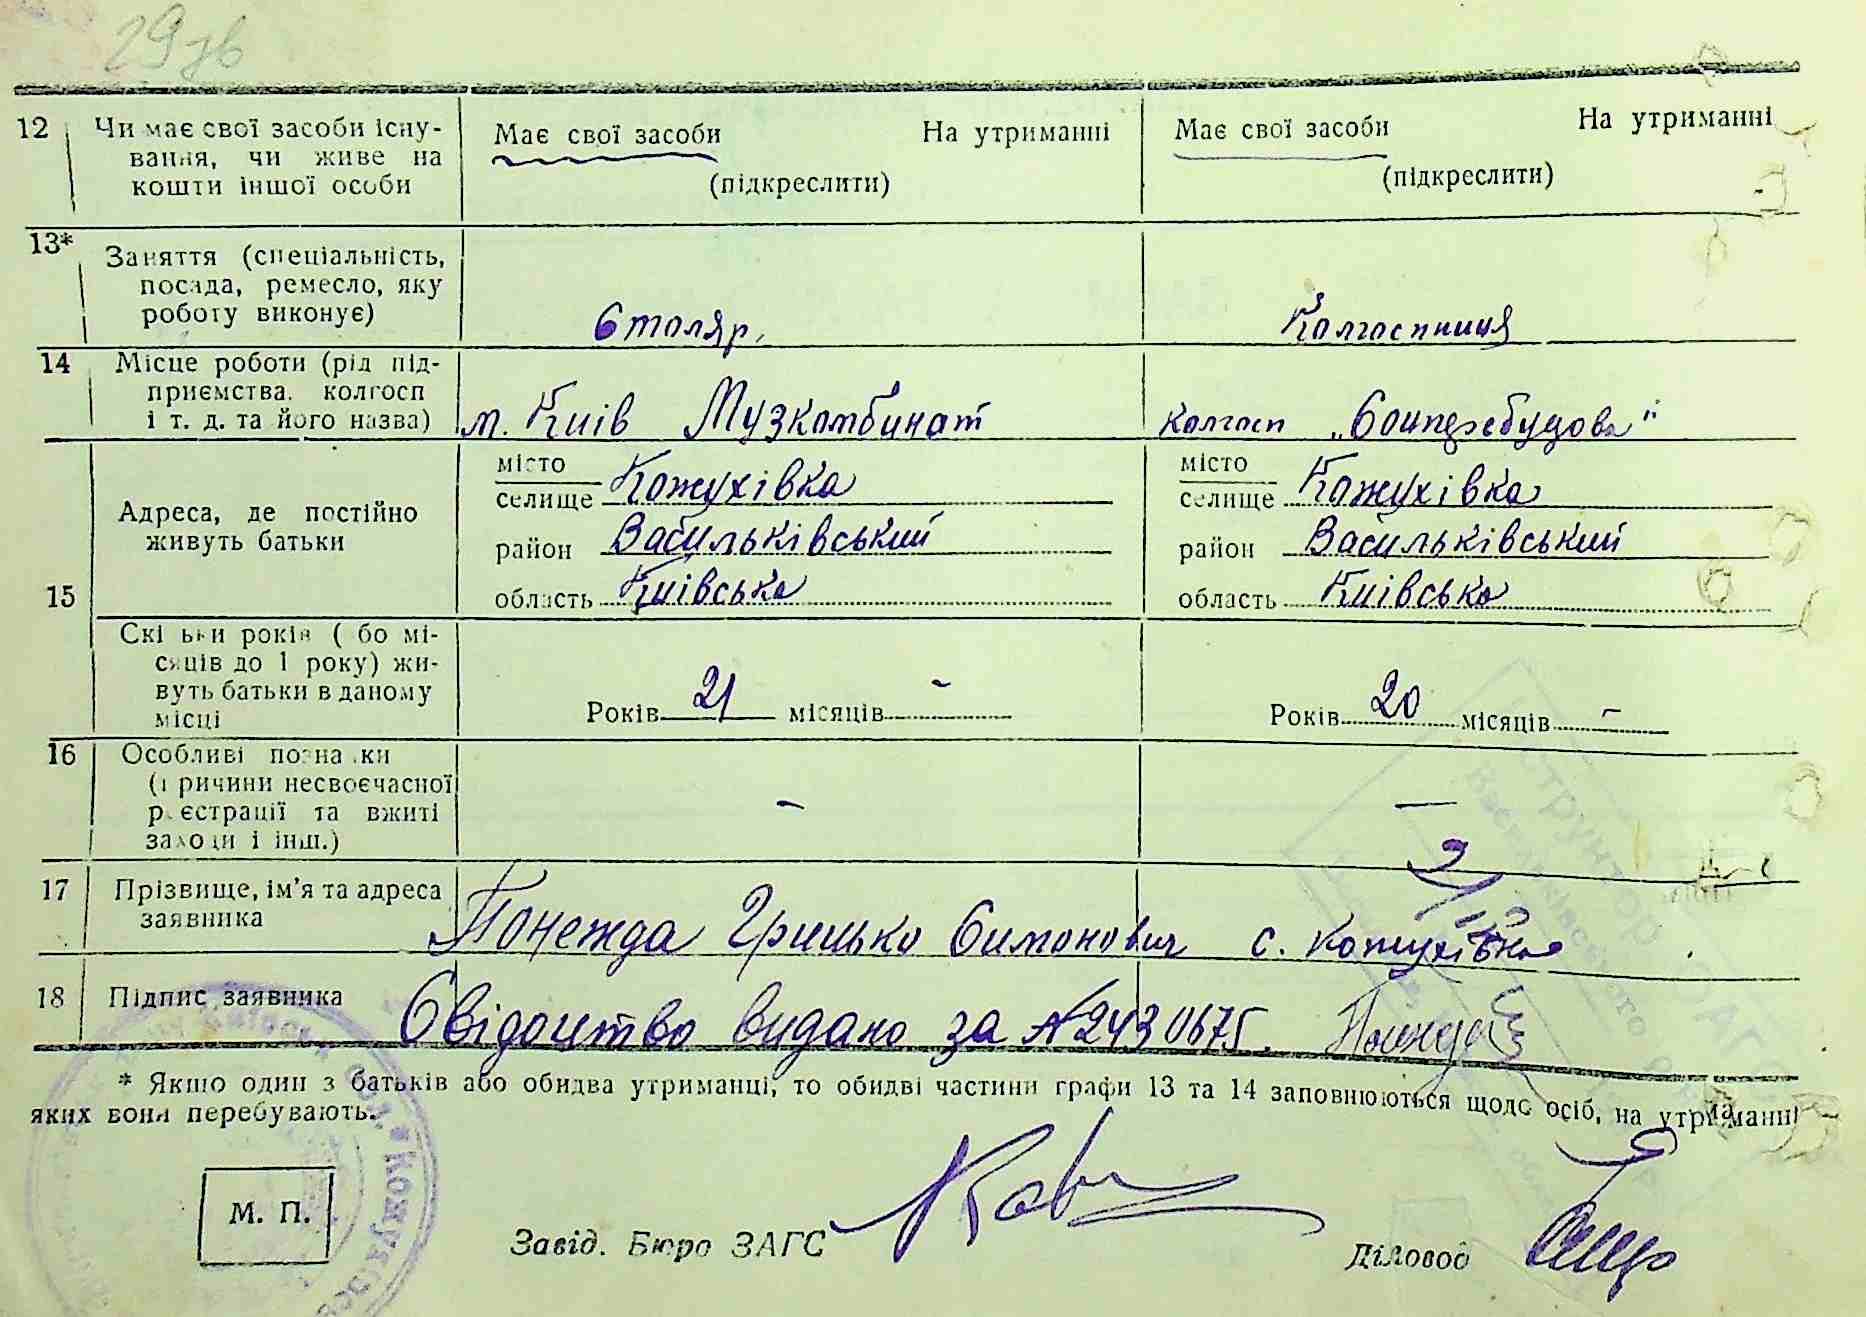 29 зв
12 Чи має свої засоби існу- Має свої засоби На утриманні Має свої засоби На утриманні
вання, чи живе на
кошти іншої особи (підкреслити) (підкреслити)
13* Заняття (спеціальність,
посада, ремесло, яку
роботу виконує) Столяр. Колгоспниця
14 Місце роботи (рід під-
приємства, колгосп
і т. д. та його назва) м. Київ Музкомбинат колгосп „Соцперебудова"
15 Адреса, де постійно
живуть батьки
місто
селище Кожухівка
район Васильківський
область Київська
місто
селище Кожухівка
район Васильківський
область Київська
Скі ьки років ( бо мі-
сяців до 1 року) жи-
вуть батьки в даному
місці
Років 21 місяців - Років 20 місяців -
16 Особливі позна ки
(причини несвоєчасної
реєстрації та вжиті
заходи і інш.) - —
17 Прізвище, ім'я та адреса
заявника Понежда Грицько Симонович с. Кожухівка
18 Підпис заявника Свідоцтво видано за №2430675. Понежда
* Якщо один з батьків або обидва утриманці, то обидві частини графи 13 та 14 заповнюються щодо осіб, на утриманні
яких вони перебувають.
М. П.
Завід. Бюро ЗАГС
Діловод